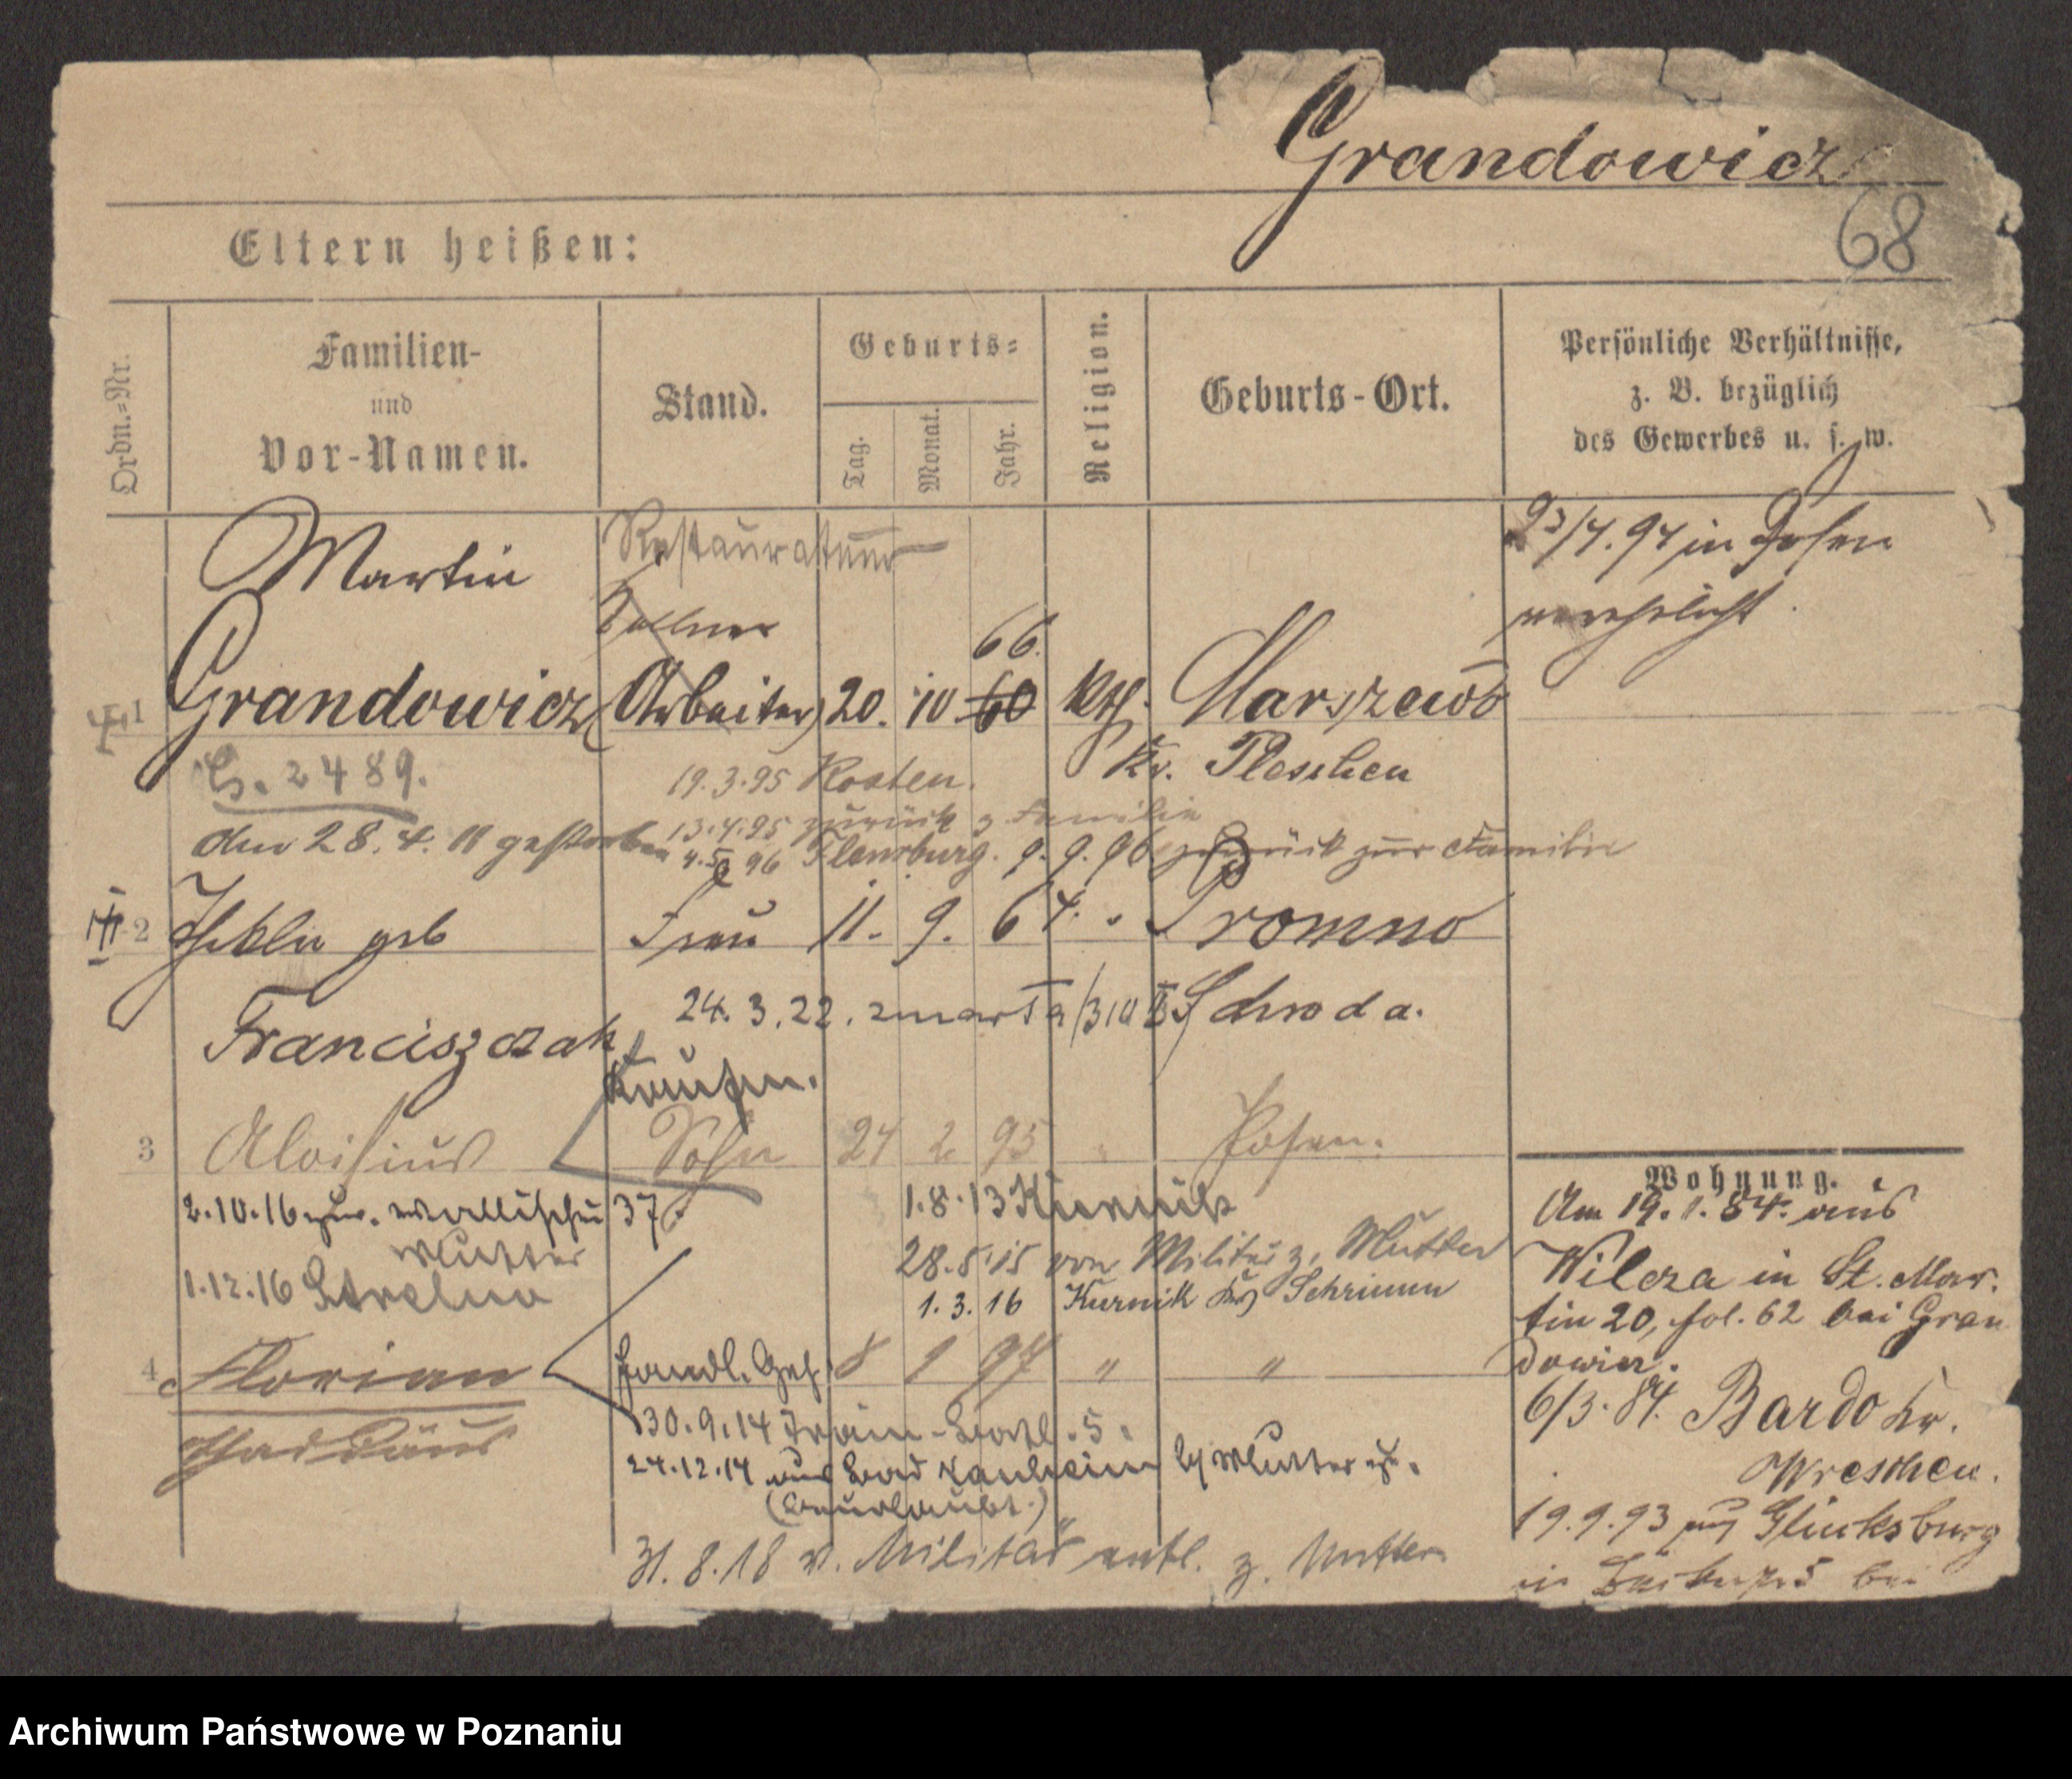 Grandowicz
68
Eltern heißen:
Ordn.=Nr.
Familien-
und
Vor-Namen.
Stand.
Geburts=
Tag.
Monat.
Jahr.
Religion.
Geburts-Ort.
Persönliche Verhältnisse,
z. B. bezüglich
des Gewerbes u. s. w.
Martin
Restaurateur
23/4. 94 in Posen
verehelicht.
Kellner
66.
1 Grandowicz (Arbeiter) 20. 10 60 kth. Marszewo
Kr. Pleschen
2489.
19.3.95 Kosten.
13.4.95 zurück z Familie
den 28. 4. 11 gestorben
96 Flensburg. 9. 9. 96 zurück zur Familie
2 Thekla geb Frau 11. 9. 64. Promno
24. 3. 22. zmarła Schroda.
Franciszczak
Kaufm.
3 Aloisius Sohn 24 2 95 Posen.
2.10.16 zur. Wallischei 37
Mutter
1.8.13 Kurnik
28.5.15 von Militär z. Mutter
1.12.16 Strelno
1. 3. 16 Kurnik Kr Schrimm
4 Florian Handl. Geh. 8 9 97 " "
Thaddäus
30.9.14 Train-Batl. 5.
24.12.14 aus Bad Nauheim Mutter
(beurlaubt.)
31. 8. 18 v. Militär entl. z. Mutter
Wohnung.
Am 19. 1. 84. aus
Wilcza in St. Mar.
tin 20, fol. 62 bei Gran
dowicz.
6/3. 84. Bardo Kr.
Wreschen.
19.9.93 aus Glücksburg
in bei
Archiwum Państwowe w Poznaniu